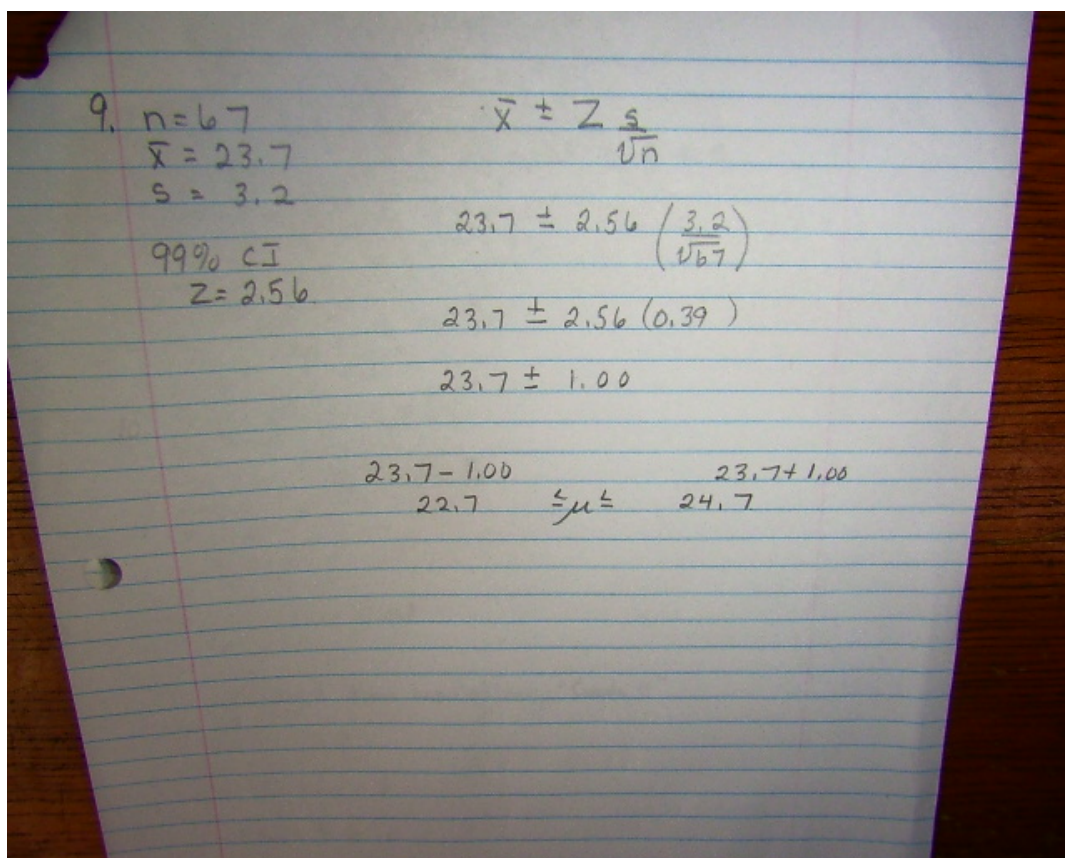 9. n = 67
x̄ = 23.7
s = 3.2
99% CI
Z = 2.56
x̄ ± Z s/√n
23.7 ± 2.56 (3.2/√67)
23.7 ± 2.56 (0.39)
23.7 ± 1.00
23.7 - 1.00 23.7 + 1.00
22.7 ≤ μ ≤ 24.7